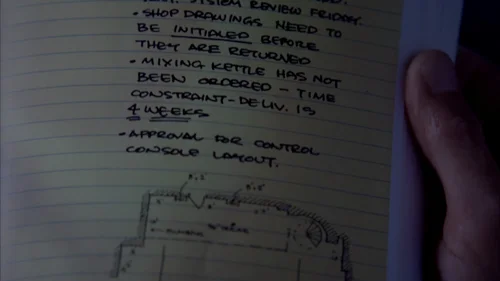 SYSTEM REVIEW FRIDAY.
• SHOP DRAWINGS NEED TO
BE INITIALED BEFORE
THEY ARE RETURNED
• MIXING KETTLE HAS NOT
BEEN ORDERED – TIME
CONSTRAINT – DELIV. IS
4 WEEKS
• APPROVAL FOR CONTROL
CONSOLE LAYOUT.